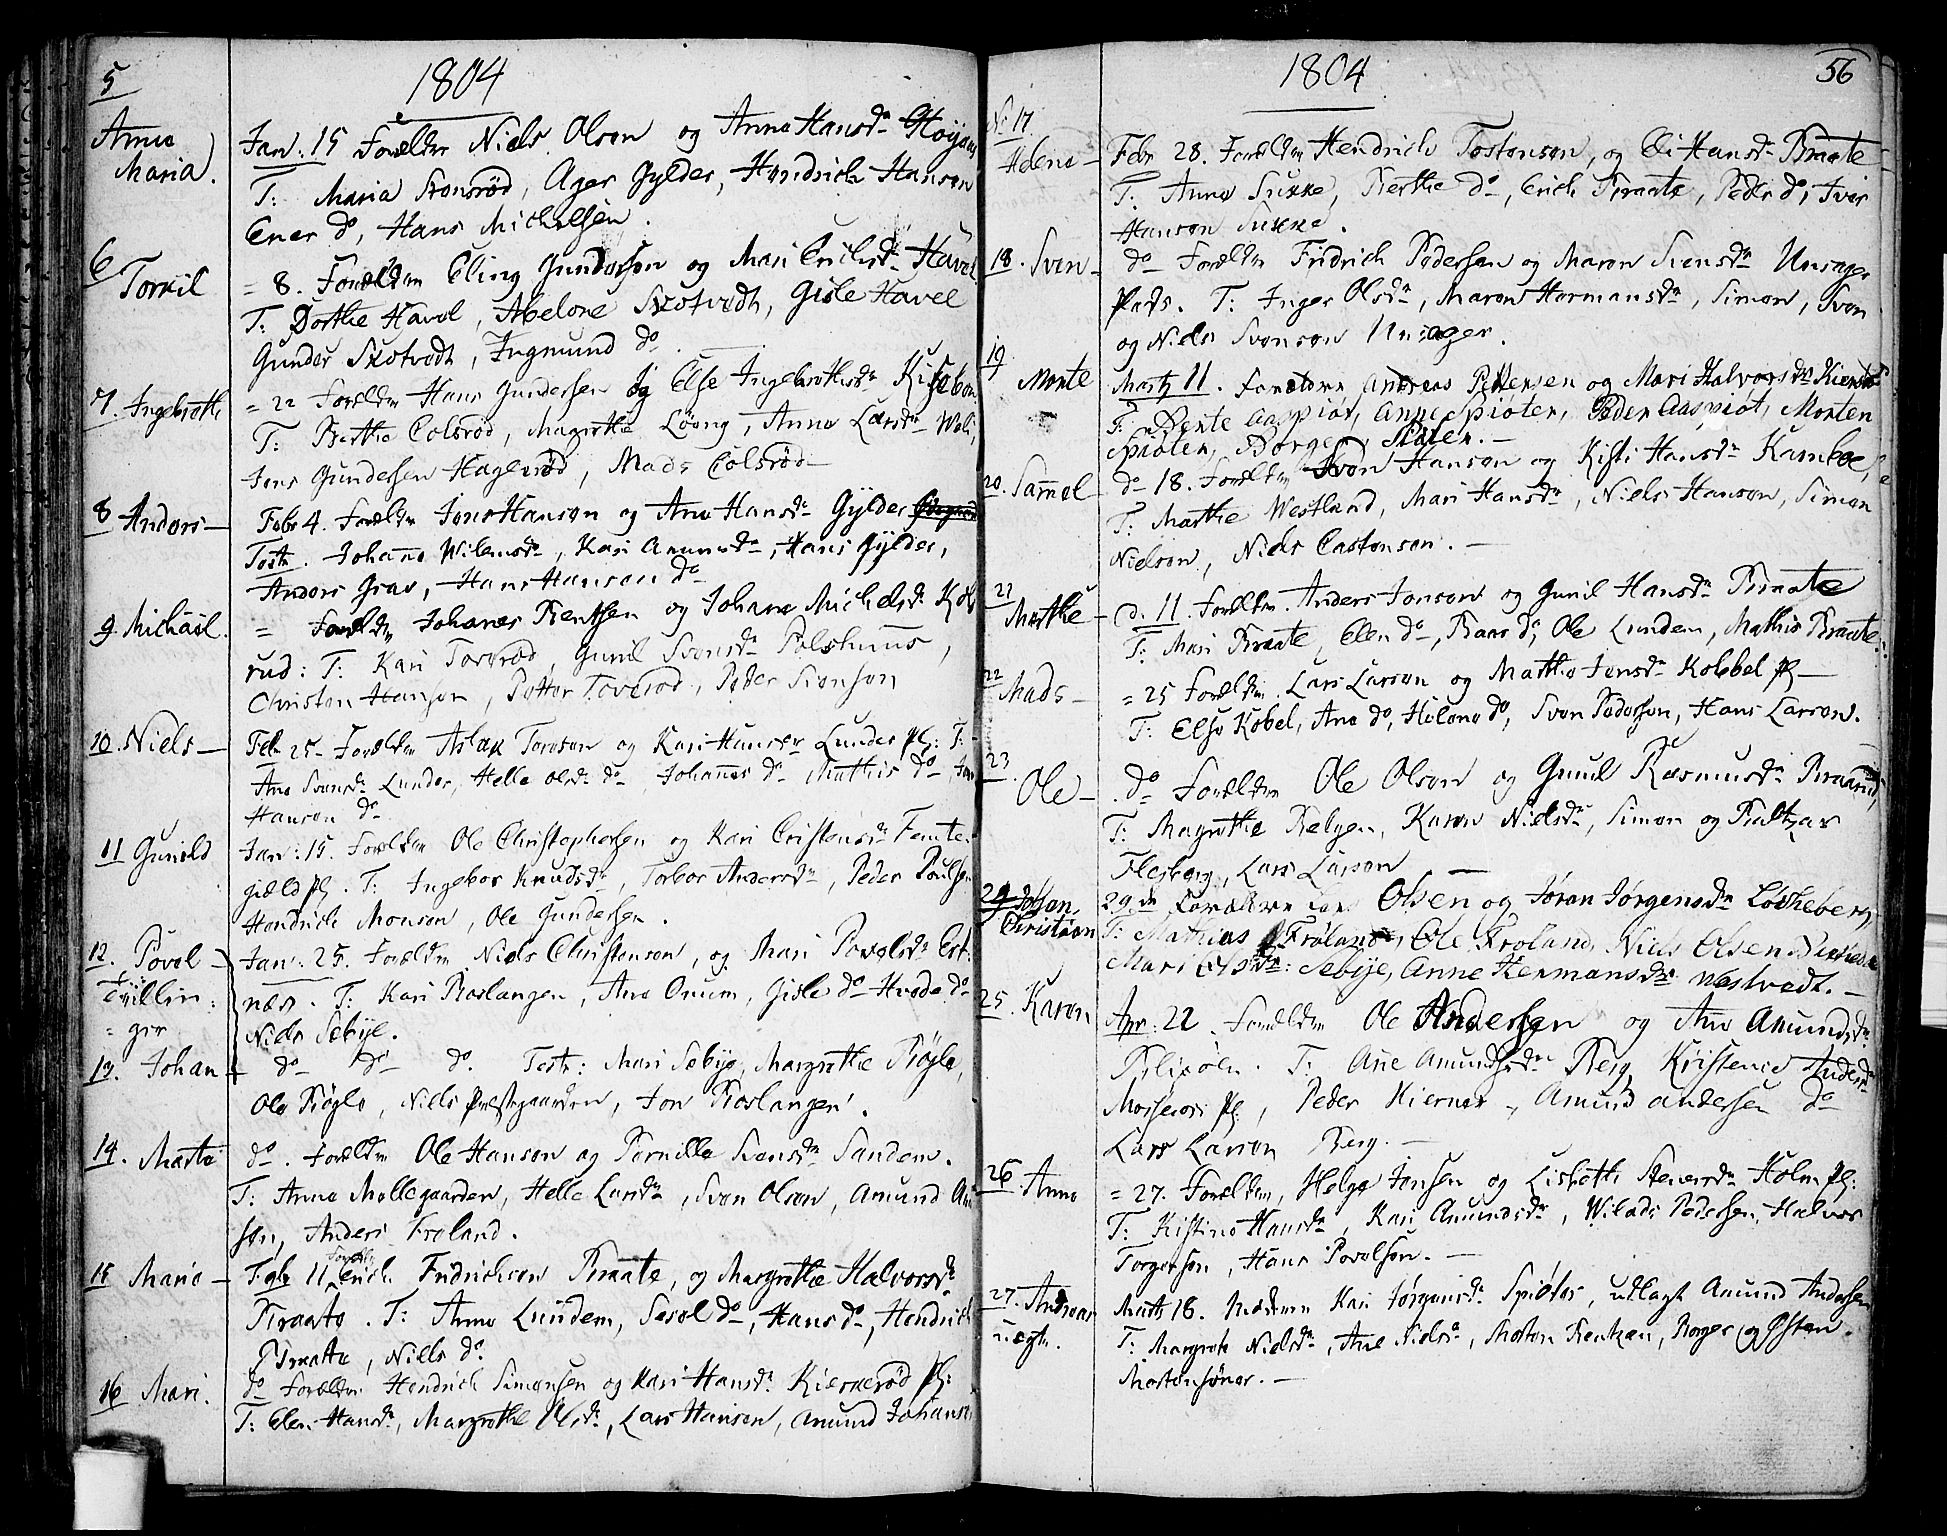 1804
5
Anna Maria.
Jan: 15 Forældre Niels Olsen og Anna Hansdr Høyaas
T: Maria Stensrød, Ager Gylder, Hendrich Hansen
Ener do, Hans Michelsen.
6 Tormil
= 8. Forældre Elling Gundersen og Mari Erichsdr Havel
T: Dorthe Havel, Abelone Skotvedt, Gisle Havel
Gunder Skotvedt, Ingmund do
7. Ingebrethe
= 22 Forældre Hans Gundersen og Else Ingebrethsdr
T: Berthe Colsrød, Magrethe Løeng, Anna Larsdr
Jens Gundersen Hagerrød, Mads Colsrød—
8 Anders—
Febr 4. Forældre Jens Hansen og Ane Hansdr Gylder
Test. Johanne Wilemsdr, Kari Amunsdr, Hans Gylder,
Anders Grav, Hans Hansen do
9. Michael.
= Forældre Johanes Bentsen og Johane Michelsdr Kols
rud: T: Kari Torsrød, Gunil Svensdr Polshuus,
Christen Hansen, Petter Toverød, Peder Svensen
10. Niels—
Feb 25— Forældre Aslak Toreson og Kari Hansdr Lunder pl: T:
Ane Svensdr Lunder, Helle Olsdr do, Johannes do Mathis do,
Hansen do
11 Gunild
Jan: 15. Forældre Ole Christophersen og Kari Cristensdr Femte
giæld pl. T: Ingebor Knudsdr, Torbor Andersdr, Peder Poulsen
Hendrich Monsen, Ole Gundersen.
12. Povel— Tvillin: = ger
Jan: 25. Forældre Niels Christensen, og Mari Povelsdr Est:
næss. T: Kari Roslangen, Ane Onum, Gisle do Hvede do
Niels Sebye.
13. Johan
do do do. Test: Mari Sebye, Margrethe Røgle,
Ole Røgle, Niels Prestegaarden, Jon Roslangen.
14. Marte
do. Forældre Ole Hansen og Pernille Svensdr Sandem.
T: Anne Møllegaarden, Helle Larsdr, Sven Olsen, Amund An
søn, Anders Froland.
15 Marie—
Feb 11 Forældre Erich Fridrichsen Braate, og Margrethe Halvorsdr
Braate. T: Anne Lundem, Sesel do, Hans do, Hendrich
Braate, Niels do
16 Mari.
do Forældre Hendrich Simonsen og Kari Hansdr Kiærnerød pl:
T: Elen Hansdr, Margrethe Olsdr, Lars Hansen, Amund Johans
1804
56
No 17. Helene—
Febr 28. Forældre Hendrich Tostensen, og Eli Hansdr Braate
T: Anne Sukke, Berthe do, Erich Braate, Peder do, Iver
Hansen Sukke.
18. Sven—
do Forældre Fridrich Pedersen og Maren Svensdr Unsager
plads. T: Inger Olsdr, Maren Hermansdr, Simen, Sven
og Niels Svensen Unsager.
19 Monte
Martz 11. Forældre Andreas Pettersen og Mari Halvorsdr
T: Dorte Aaspiøt, Anne Spiøten, Peder Aaspiøt, Morten
Spiøten, Borge Spiøten.—
20. Samuel—
do 18. Forældre Sven Hansen og Kisti Hansdr Kamboe,
T: Marthe Westland, Mari Hansdr, Niels Hansen, Simen
Nielsen, Niels Castensen.—
21 Marthe—
d. 11. Forældre. Anders Jensen og Gunil Hansdr Braate
T: Mari Braate, Elen do, Baar do, Ole Lundem, Mathis Braate.
22 Mads—
= 25 Forældre Lars Larsen og Marthe Jensdr Kobbel pl—
T: Else Kobel, Ane do, Helene do, Sven Pedersen, Hans Larsen.
23. Ole—
do Forældre Ole Olsen og Gunil Rasmusdr Braarud,
T: Magrethe Relgen, Karen Nielsdr, Simen og Baltzar
Flesberg, Lars Larsen—
24 Johan Christian
29de Forældre Lars Olsen og Jøran Jørgensdr Løkkeberg,
T: Mathias Frøland, Ole Froland, Niels Olsen
Mari Olsdr: Sebye, Anne Hermansdr Westvedt.—
25. Karen
Apr: 22. Forældre Ole Andersen og Ane Amundsdr
T: Ane Amundsdr Berg, Kristense Andersdr
Morserød pl, Peder Kierner, Amund Andersen do
Lars Larsen Berg.—
26 Anne
= 27. Forældre, Helge Jensen og Lisbeth Stenersdr Holm pl:
T: Kistine Hansdr, Kari Amundsdr, Wilads Pedersen, Halvor
Torgersen, Hans Povelsen.—
27. Andreas uægte.
Martz 18. Moderen Kari Jørgensdr Spiøten, udlagt Amund Andersen
T: Margrete Nielsdr, Ane Nielsdr, Morten Bentzen, Borger og Østen
Mortensønner.—